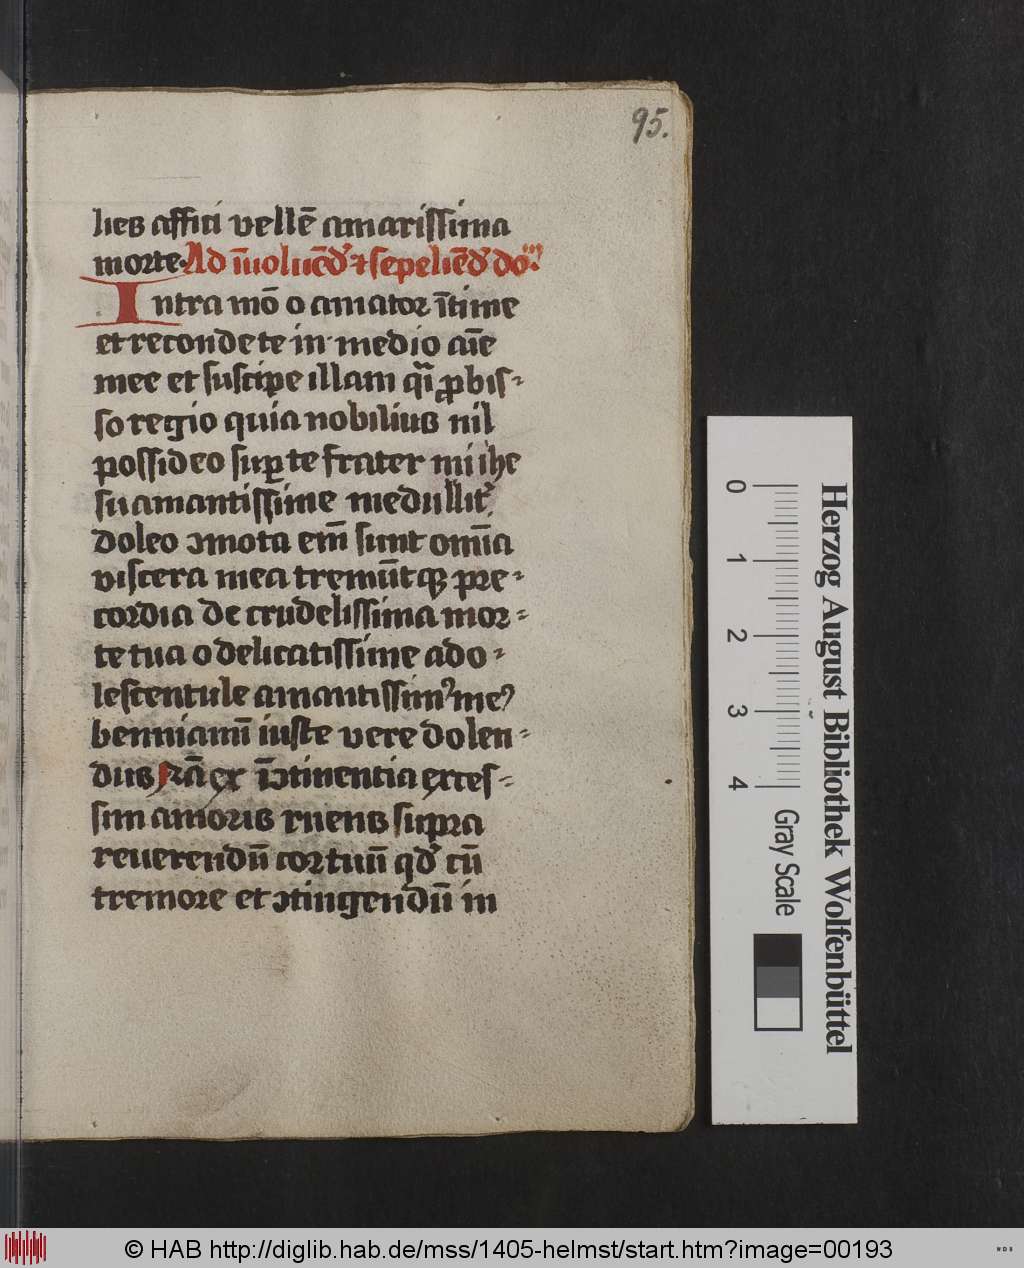 95.
lies affici vellē amarissima
morte. Ad īuoluēdꝰ ⁊ sepeliēdꝰ doꝫ
Intra mō o amator ītime
et reconde te in medio aīe
mee et suscipe illam qͥ p̱ bis-
so regio quia nobilius nil
possideo sup̱ te frater mi ihe
su amantissime medullitꝰ
doleo ↄmota em̄ sunt om̄ia
viscera mea tremūt qꝫ pre-
cordia de crudelissima mor-
te tua o delicatissime ado-
lescentule amantissimꝰ meꝰ
benniamī iuste vere dolen-
dus Nā ex īↄtinentia exces-
sim amoris ruens supra
reuerendū cor tuū qđ cū
tremore et ↄtingendū in
Herzog August Bibliothek Wolfenbüttel
0 1 2 3 4
Gray Scale
© HAB http://diglib.hab.de/mss/1405-helmst/start.htm?image=00193